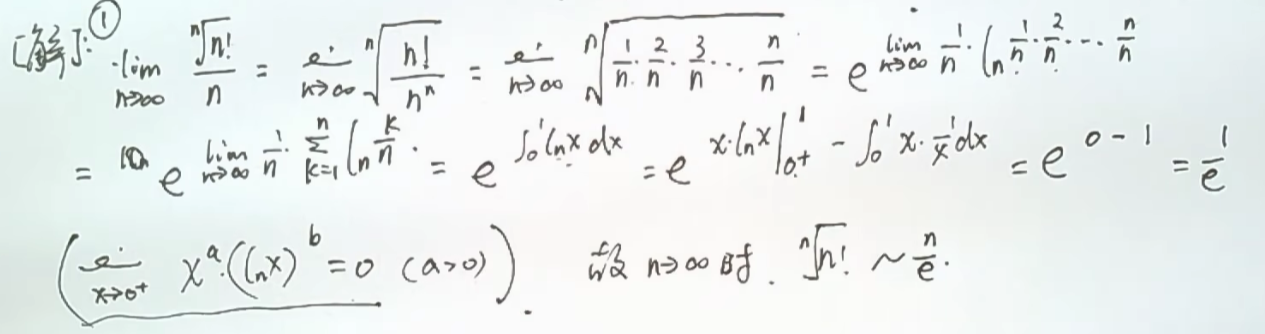 [解]:① lim_{n→∞} ⁿ√n! / n = lim_{n→∞} ⁿ√(n!/nⁿ) = lim_{n→∞} ⁿ√(1/n · 2/n · 3/n ··· n/n) = e^{lim_{n→∞} 1/n · ln 1/n · 2/n ··· n/n}
= e^{lim_{n→∞} 1/n · Σ_{k=1}^{n} ln k/n} = e^{∫₀¹ ln x dx} = e^{x·ln x |_{0⁺}^{1} - ∫₀¹ x · 1/x dx} = e^{0-1} = 1/e
(lim_{x→0⁺} x^a·(ln x)^b = 0 (a>0)). 故 n→∞ 时. ⁿ√n! ~ n/e.